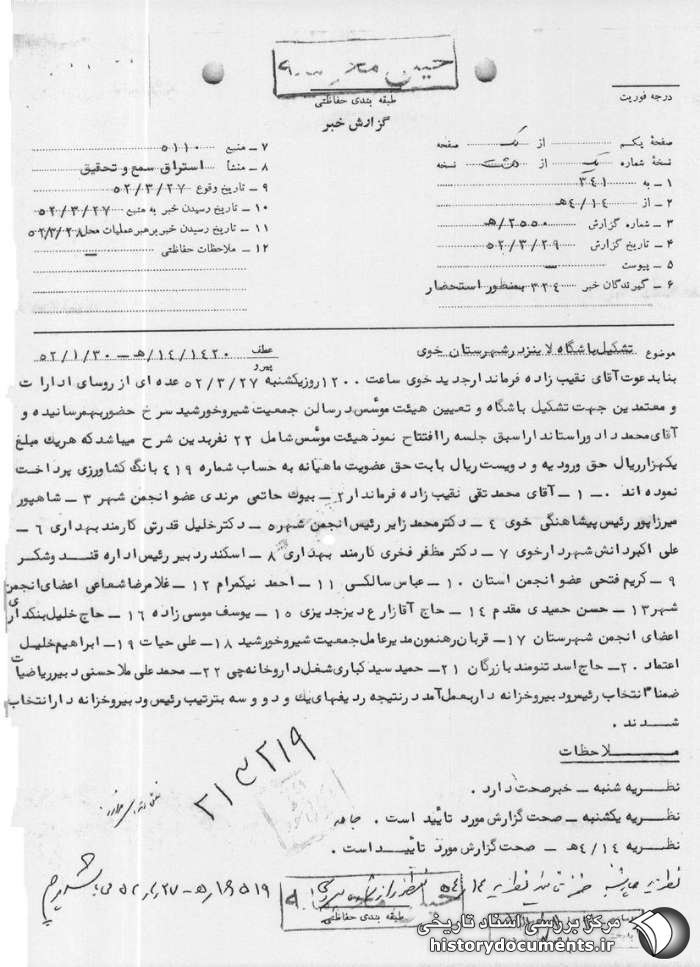 خیلی محرمانه
طبقه بندی حفاظتی
گزارش خبر
درجه فوریت
صفحهٔ یکم از یک صفحه
نسخهٔ شماره یک از هشت نسخه
۱ ـ به ۳۴۱
۲ ـ از ۴/۱۴ه
۳ ـ شماره گزارش ۲۵۵۰/ه
۴ ـ تاریخ گزارش ۵۲/۳/۲۹
۵ ـ پیوست ـ
۶ ـ گیرندگان خبر ۳۲۴ بمنظور استحضار
۷ ـ منبع ۵۱۱۰
۸ ـ منشأ استراق سمع و تحقیق
۹ ـ تاریخ وقوع ۵۲/۳/۲۷
۱۰ ـ تاریخ رسیدن خبر به منبع ۵۲/۳/۲۷
۱۱ ـ تاریخ رسیدن خبر برهبر عملیات محل ۵۲/۳/۲۸
۱۲ ـ ملاحظات حفاظتی ـ
موضوع تشکیل باشگاه لاینز در شهرستان خوی
عطف پیرو ۱۴/۱۴۲۰/ه ـ ۵۲/۱/۳۰
بنا بدعوت آقای نقیب زاده فرماندار جدید خوی ساعت ۱۲۰۰ روز یکشنبه ۵۲/۳/۲۷ عده ای از روسای ادارات
و معتمدین جهت تشکیل باشگاه و تعیین هیئت موئسس در سالن جمعیت شیر و خورشید سرخ حضور بهمرسانیده و
آقای محمد داد ور استاندار اسبق جلسه را افتتاح نمود هیئت موئسس شامل ۲۲ نفر بدین شرح میباشد که هریک مبلغ
یکهزار ریال حق ورودیه و دویست ریال بابت حق عضویت ماهیانه به حساب شماره ۴۱۹ بانک کشاورزی پرداخت
نموده اند ۰ـ ۱ ـ آقای محمد تقی نقیب زاده فرماندار ۲ ـ بیوک حاتمی مرندی عضو انجمن شهر ۳ ـ شاهپور
میرزاپور رئیس پیشاهنگی خوی ۴ ـ دکتر محمد زایر رئیس انجمن شهر ۵ ـ دکتر خلیل قدرتی کارمند بهداری ۶ ـ
علی اکبر دانش شهردار خوی ۷ ـ دکتر مظفر فخری کارمند بهداری ۸ ـ اسکندر دبیر رئیس اداره قند و شکر
۹ ـ کریم فتحی عضو انجمن استان ۱۰ ـ عباس سالکی ۱۱ ـ احمد نیکمرام ۱۲ ـ غلامرضا شعاعی اعضای انجمن
شهر ۱۳ ـ حسن حمیدی مقدم ۱۴ ـ حاج آقا زارع دیزجدیزی ۱۵ ـ یوسف موسی زاده ۱۶ ـ حاج خلیل بنکداری
اعضای انجمن شهرستان ۱۷ ـ قربان رهنمون مدیر عامل جمعیت شیر و خورشید ۱۸ ـ علی حیات ۱۹ ـ ابراهیم خلیل
اعتماد ۲۰ ـ حاج اسد تنومند بازرگان ۲۱ ـ حمید سید کباری شغل داروخانه چی ۲۲ ـ محمد علی ملاحسنی دبیر ریاضیات
ضمنا" انتخاب رئیس و دبیر و خزانه دار بعمل آمد در نتیجه ردیفهای یک و دو و سه بترتیب رئیس و دبیر و خزانه دار انتخاب
شدند .
ملاحظات
نظریه شنبه ـ خبر صحت دارد .
نظریه یکشنبه ـ صحت گزارش مورد تأیید است .
نظریه ۴/۱۴ه ـ صحت گزارش مورد تأیید است .
۲۱۳۲۱۹
طبقه بندی حفاظتی
مرکز بررسی اسناد تاریخی
historydocuments.ir